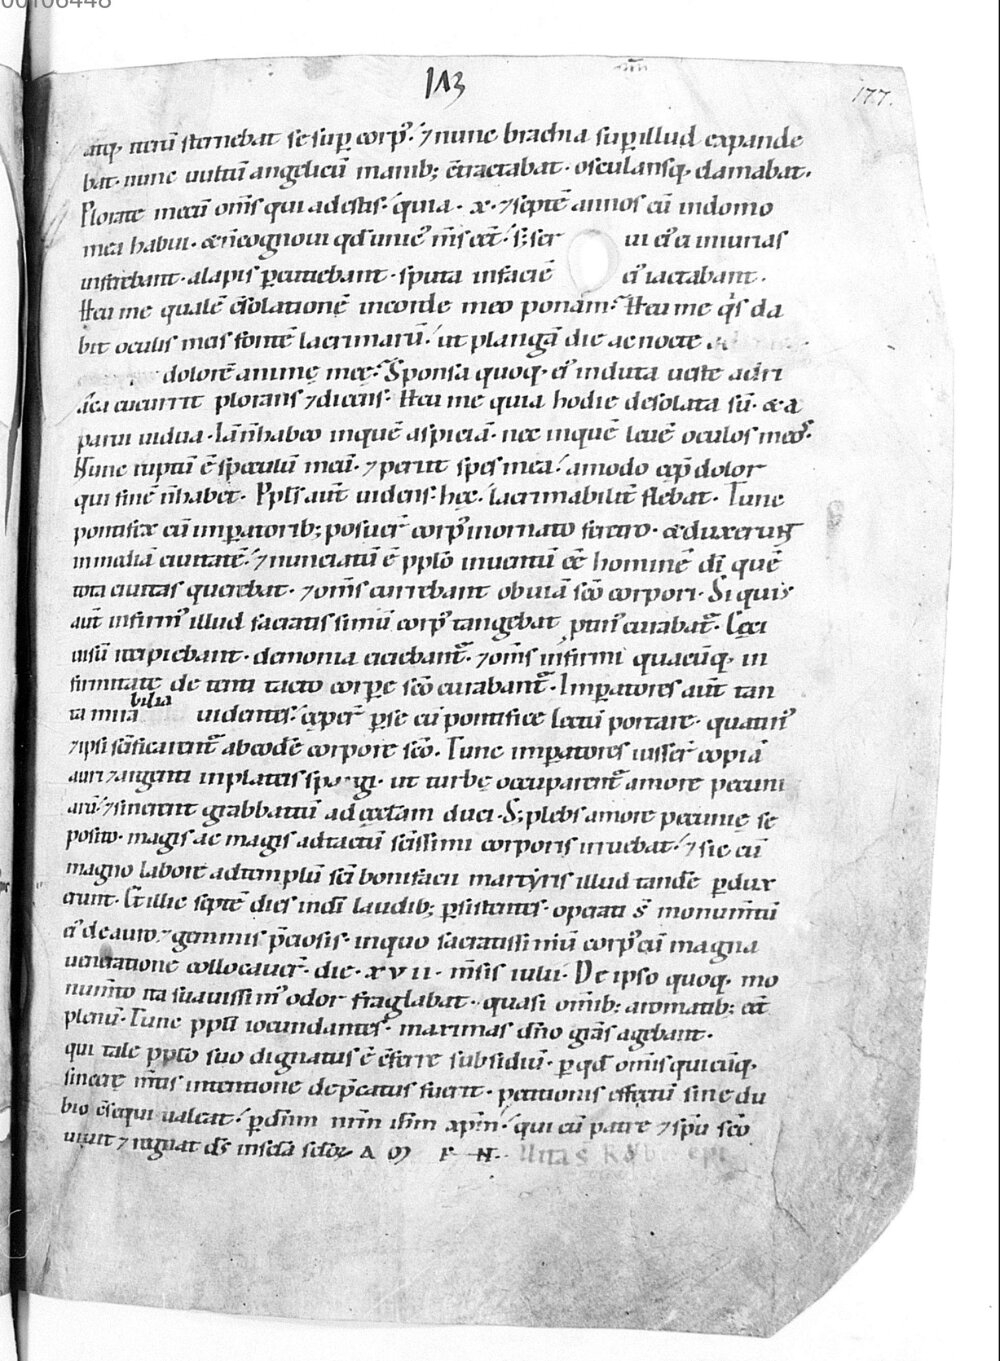 00106448
113
177.
atq; iterū sternebat se sup̄ corpꝰ. ⁊ nunc brachia sup̄ illud expande
bat. nunc uultū angelicū manib; c̄tractabat. osculansq; clamabat.
Plorate mecū om̄s qui adestis. quia .x. ⁊ septē annos eū in domo
mea habui. & n̄ cognoui qd̄ unicꝰ m̄s eēt. s; ser ui eiꝰ ei iniurias
inferebant. alapis percutiebant. sputa in faciē eiꝰ iactabant.
Heu me qualē c̄solationē in corde meo ponam. Heu me q̇s da
bit oculis meis fontē lacrimarū. ut plangā die ac nocte
dolorē animę meę. Sponsa quoq; eiꝰ induta ueste adri
atica cucurrit plorans ⁊ dicens. Heu me quia hodie desolata sū. & a
parui uidua. Iā n̄ habeo in quē aspiciā. nec in quē leuē oculos meos.
Nunc ruptū ē speculū meū. ⁊ periit spes mea. amodo cępit dolor
qui finē n̄ habet. Ppl̄s aut̄ uidens hęc. lacrimabilit̄ flebat. Tunc
pontifex cū imp̄atorib; posuer̄ corpꝰ in ornato feretro. & duxerunt
in mediā ciuitatē. ⁊ nunciatū ē ppl̄o inuentū eē hominē dī quē
tota ciuitas querebat. ⁊ om̄s currebant obuiā sc̄o corpori. Si quis
aut̄ infirmꝰ illud sacratissimū corpꝰ tangebat, ptinꝰ curabat̄. Cęci
uisū recipiebant. demonia eiciebant̄. ⁊ om̄s infirmi quacūq; in
firmitate detenti tacto corpore sc̄o curabant̄. Imp̄atores aut̄ tan
ta mirabilia uidentes. cęper̄ p̄ se cū pontifice lectū portare. quatinꝰ
⁊ ipsi sc̄ificarent̄ ab eodē corpore sc̄o. Tunc imp̄atores iusser̄ copiā
auri ⁊ argenti in plateis spargi. ut turbę occuparent̄ amore pecuni
arū. ⁊ sinerent grabbattū ad ęccl̄am duci. S; plebs amore pecunię se
posito. magis ac magis ad tactū sc̄issimi corporis irruebat. ⁊ sic cū
magno labore ad templū sc̄i bonifacii martyris illud tandē p̄dux
erunt. Et illic septē dies in dī laudib; p̄sistentes. operati s̄ monum̄tū
ei de auro ⁊ gemmis p̄ciosis. in quo sacratissimū corpꝰ cū magna
ueneratione collocauer̄. die. xvii. m̄sis iulii. De ipso quoq; mo
num̄to ita suauissimꝰ odor fraglabat. quasi om̄ib; aromatib; eēt
plenū. Tunc ppl̄i iocundantes. maximas dn̄o gr̄as agebant.
qui tale ppl̄o suo dignatus ē c̄ferre subsidiū. p̄ qd̄ om̄is quicūq;
sincere m̄tis intentione dep̄catus fuerit. petitionis effectū sine du
bio c̄sequi ualeat. p̄ dn̄m nr̄m ih̄m xp̄m. qui cū patre ⁊ sp̄u sc̄o
uiuit ⁊ regnat ds̄ in sęcl̄a sęcl̄oꝝ A M E N.